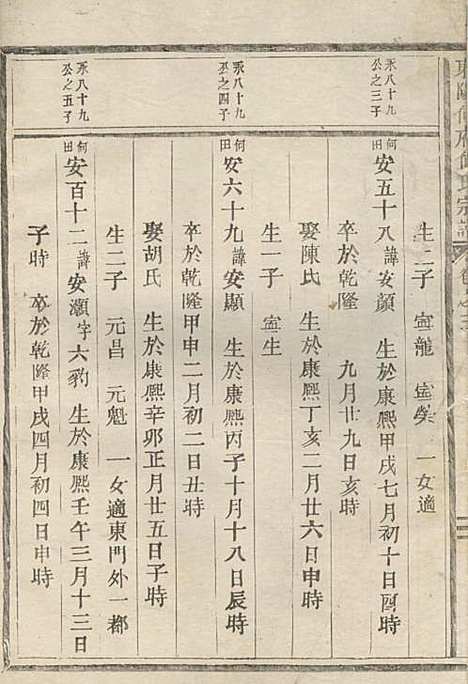 生二子 寍龍 寍榮 一女適
永八十九
公之三子
何田
安五十八 諱安顔 生於康熙甲戌七月初十日酉時
卒於乾隆 九月廿九日亥時
娶陳氏 生於康熙丁亥二月廿六日申時
生一子 寍生
永八十九
公之四子
何田
安六十九 諱安顯 生於康熙丙子十月十八日辰時
卒於乾隆甲申二月初二日丑時
娶胡氏 生於康熙辛卯正月廿五日子時
生二子 元昌 元魁 一女適東門外一都
永八十九
公之五子
何田
安百十二 諱安灝字六豹 生於康熙壬午三月十三日
子時 卒於乾隆甲戌四月初四日申時